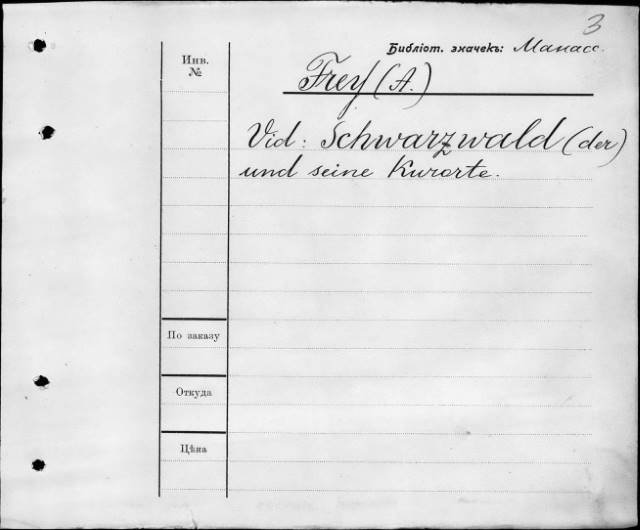 3
Библіот. значекъ: Манасс.
Инв.
№
Frey (A.)
Vid: Schwarzwald (der)
und seine Kurorte.
По заказу
Откуда
Цѣна